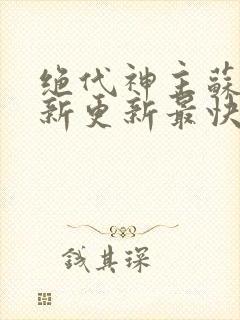 绝代神主蘇
新更新最快
钱其琛